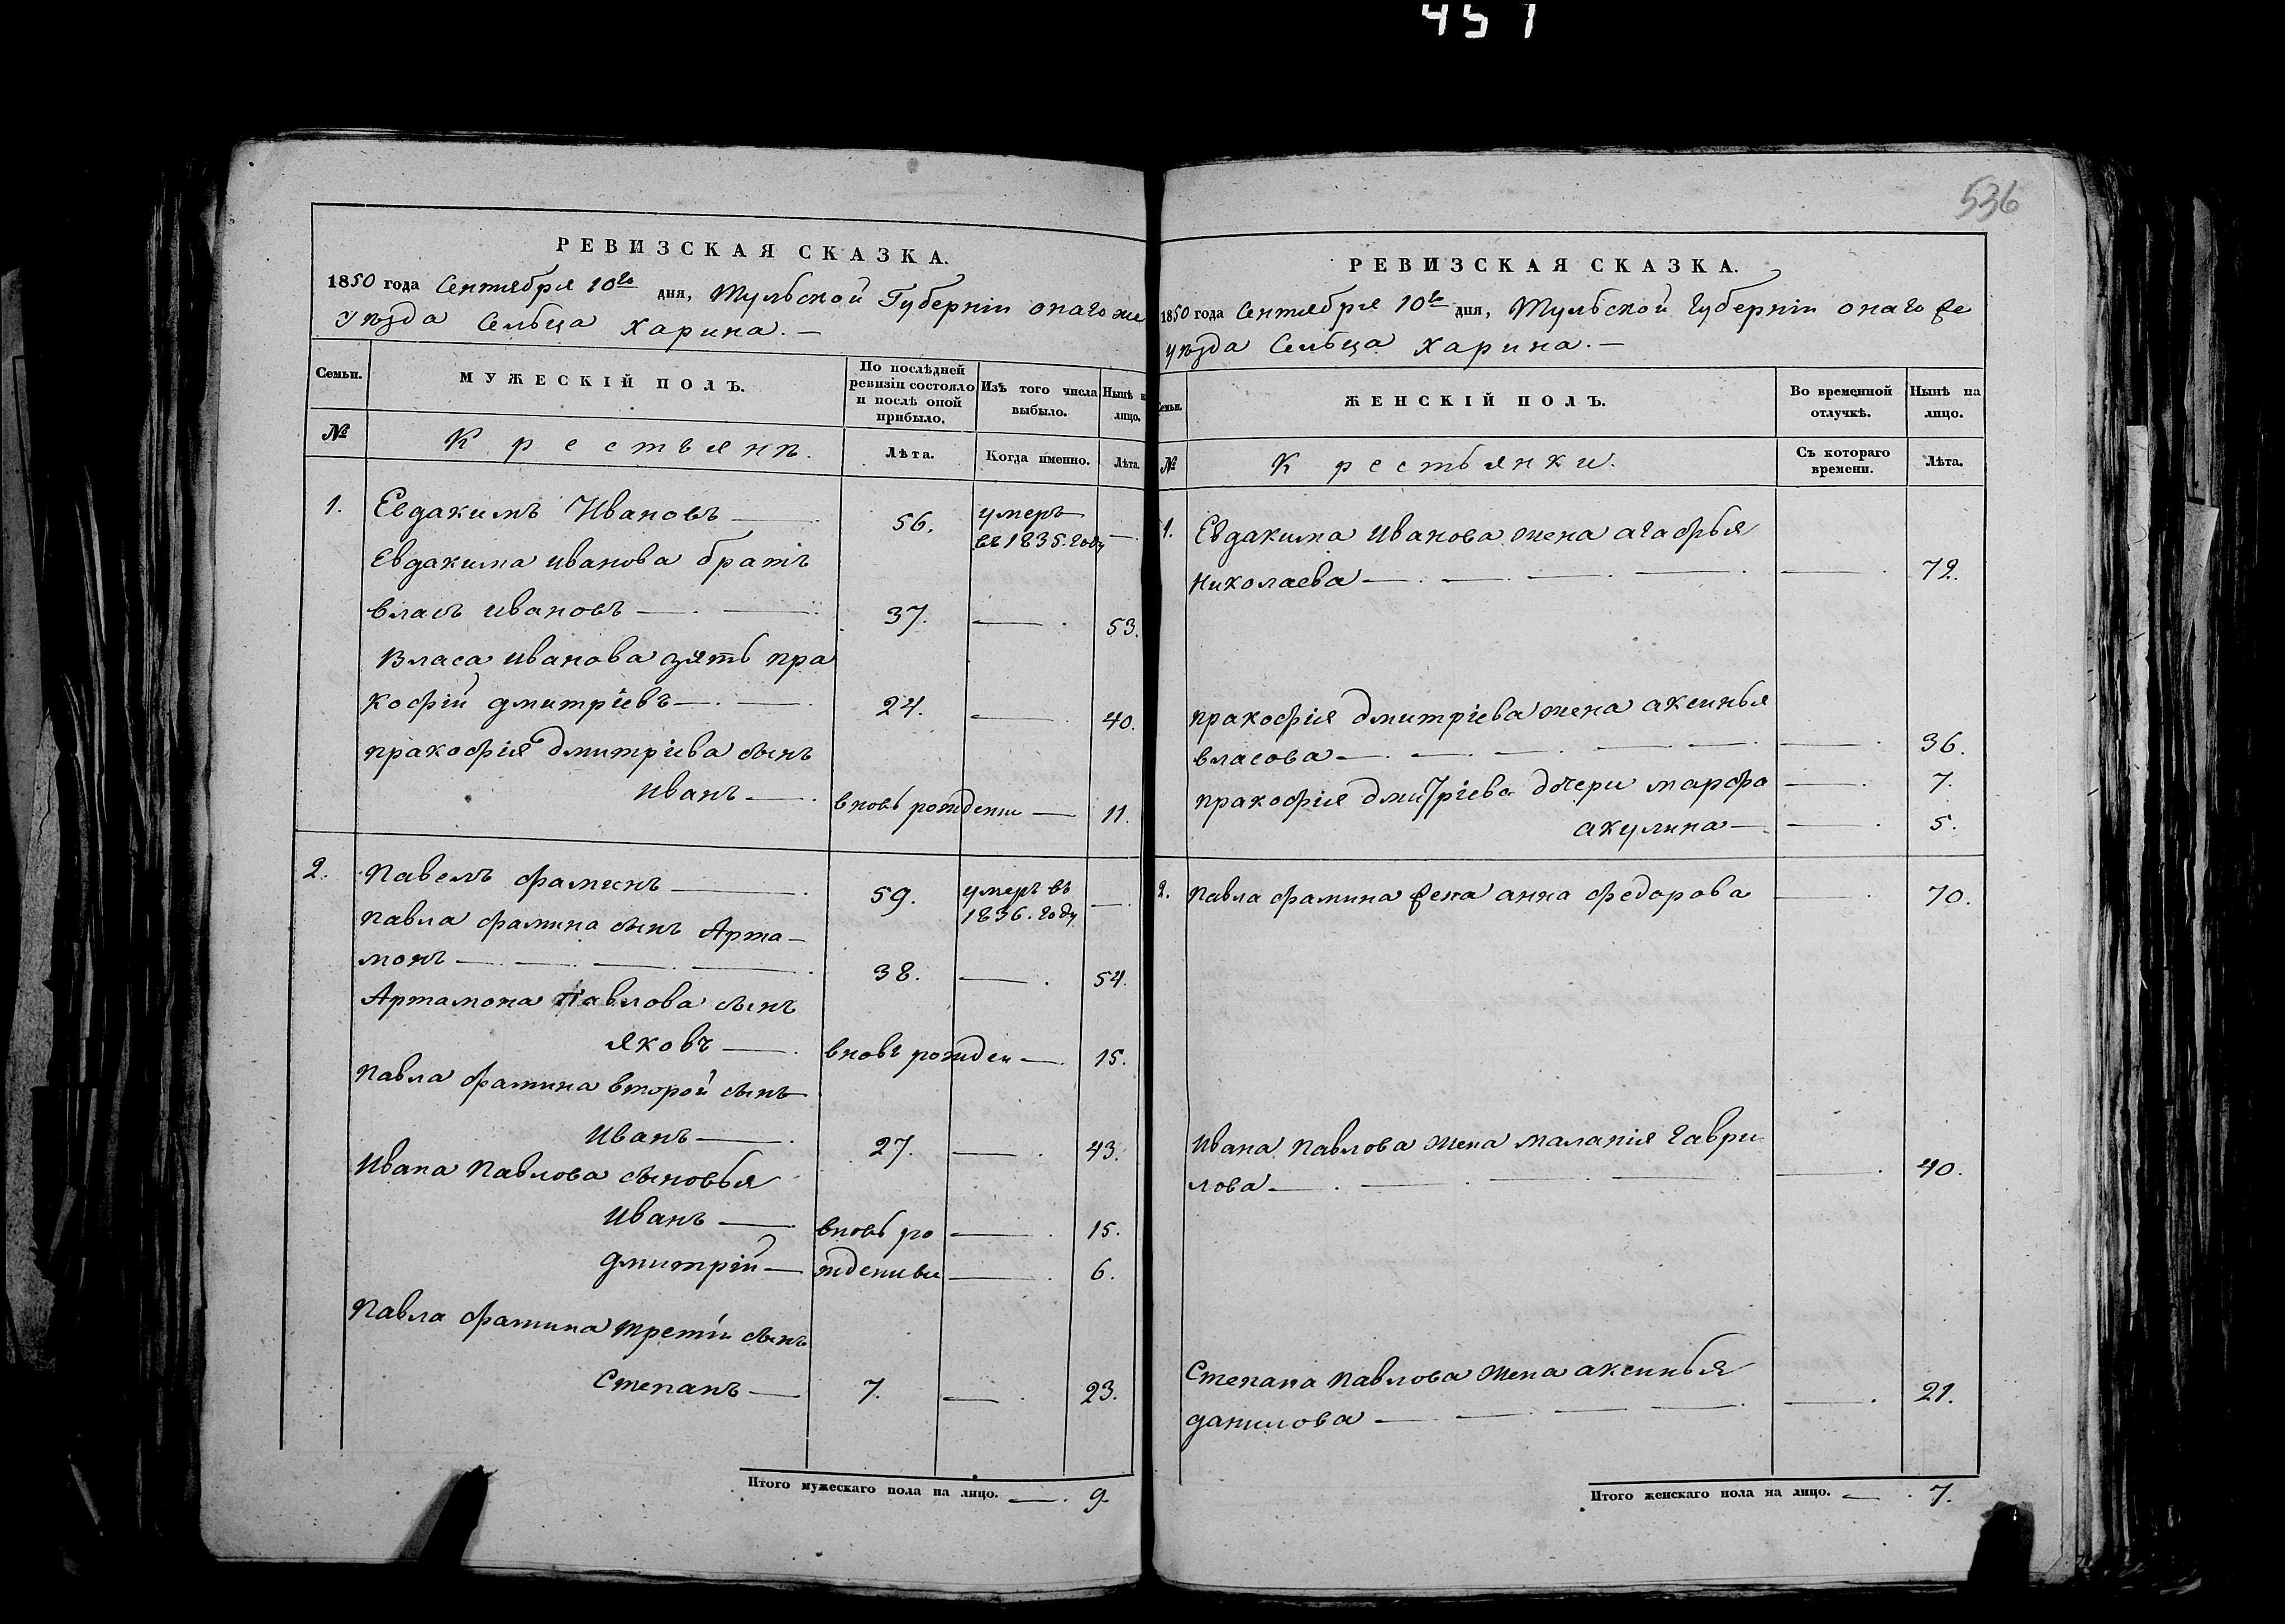 457
РЕВИЗСКАЯ СКАЗКА.
1850 года Сентября 10го дня, Тульской Губерніи онаго же
уѣзда Сельца Харина. —
Семьи.
МУЖЕСКІЙ ПОЛЪ.
По послѣдней ревизіи состояло и послѣ оной прибыло.
Изъ того числа выбыло.
Нынѣ на лицо.
№
Крестьянѣ.
Лѣта.
Когда именно.
Лѣта.
1. Евдакимъ Ивановъ — 56. умеръ
въ 1835. году —
Евдакима иванова братъ
власъ ивановъ — 37. — 53.
Власа иванова зять пра
кофій дмитріевъ — 24. — 40.
пракофія дмитріева сынъ
иванъ — вновь рожденн — 11.
2. Павелъ фаминъ — 59. умеръ въ
1836. году —
павла фамина сынъ Арта-
монъ — 38. — 54.
Артамона павлова сынъ
яковъ — вновь рожден — 15.
павла фамина второй сынъ
иванъ — 27. — 43.
ивана павлова сыновья
иванъ — вновь ро — 15.
дмитрій — жденные — 6.
Павла фамина третій сынъ
Степанъ — 7. — 23.
Итого мужескаго пола на лицо. — 9.
536
РЕВИЗСКАЯ СКАЗКА.
1850 года Сентября 10го дня, Тульской губерніи онаго же
уѣзда Сельца Харина. —
Семьи.
ЖЕНСКІЙ ПОЛЪ.
Во временной отлучкѣ.
Нынѣ на лицо.
№
Крестьянки.
Съ котораго времени.
Лѣта.
1. Евдакима иванова жена агафья
николаева — 72.
пракофія дмитріева жена аксинья
власова — 36.
пракофія дмитріева дочери марфа — 7.
акулина — 5.
2. павла фамина жена анна федорова — 70.
ивана павлова жена маланія гаври
лова — 40.
Степана павлова жена аксинья
данилова — 21.
Итого женскаго пола на лицо. — 7.